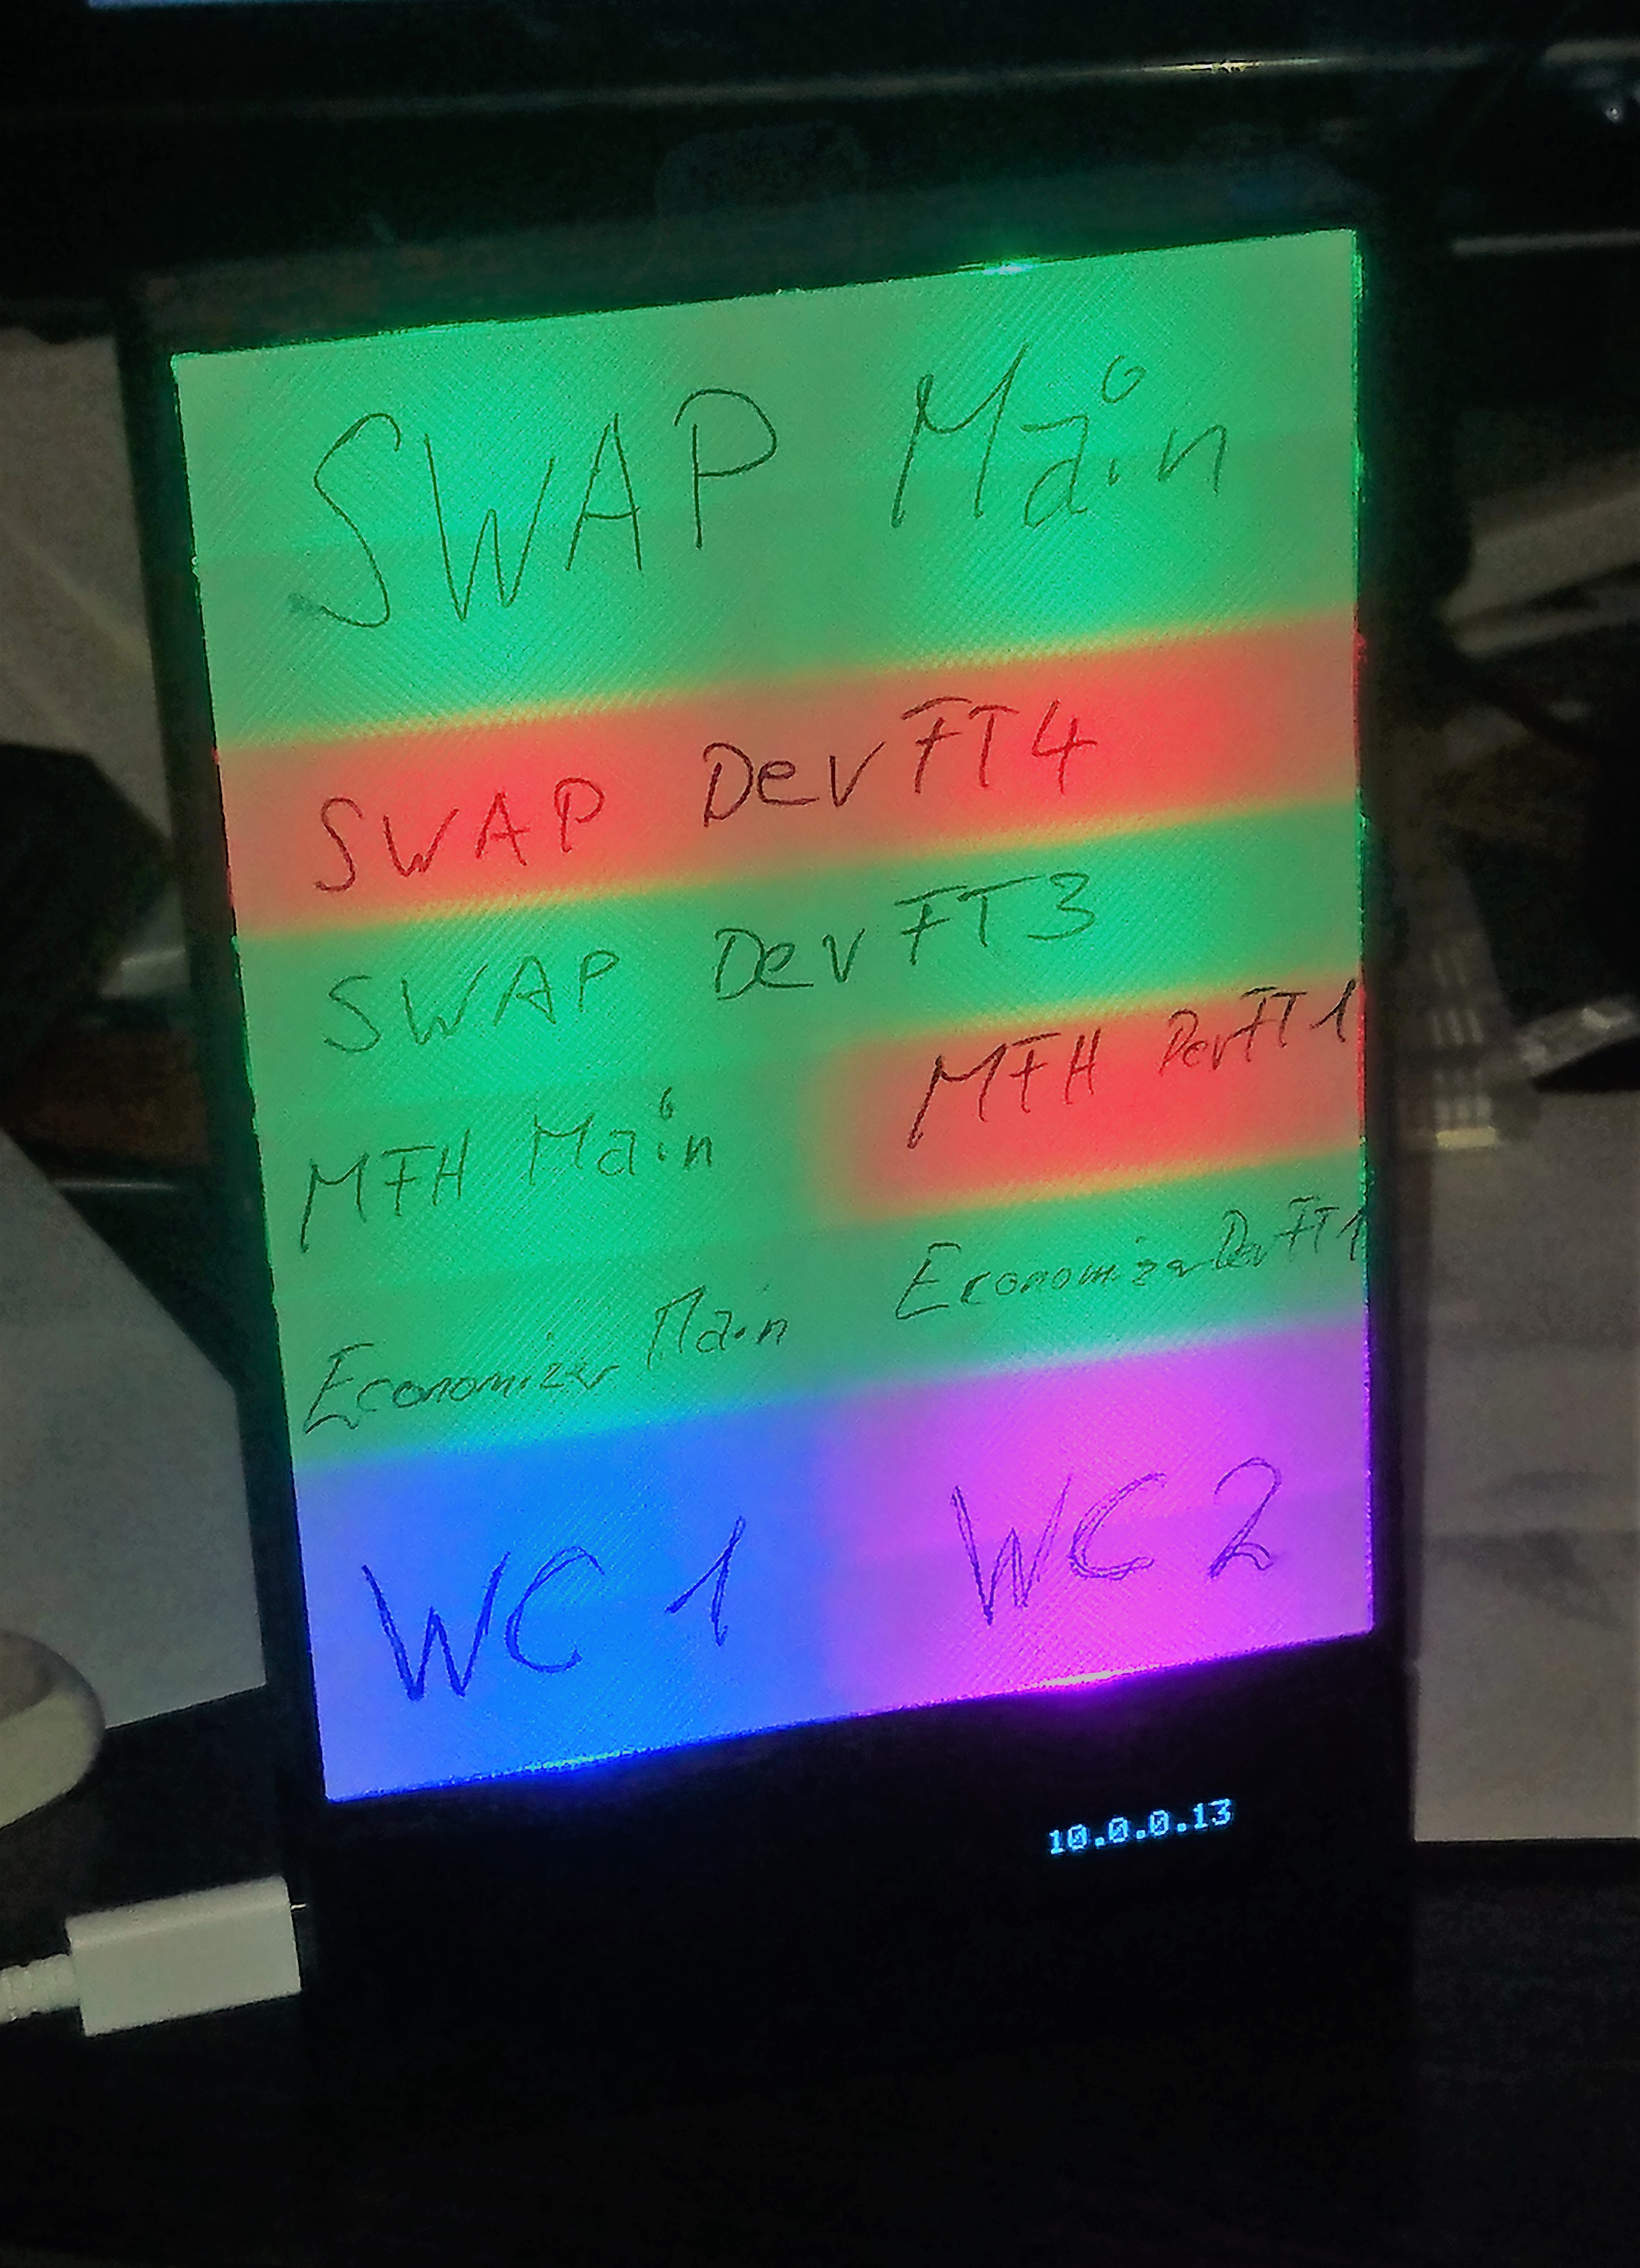 SWAP Main
SWAP DevFT4
SWAP DevFT3
MFH Main MFH DevFT1
Economizer Main Economizer DevFT1
WC 1 WC 2
10.0.0.13